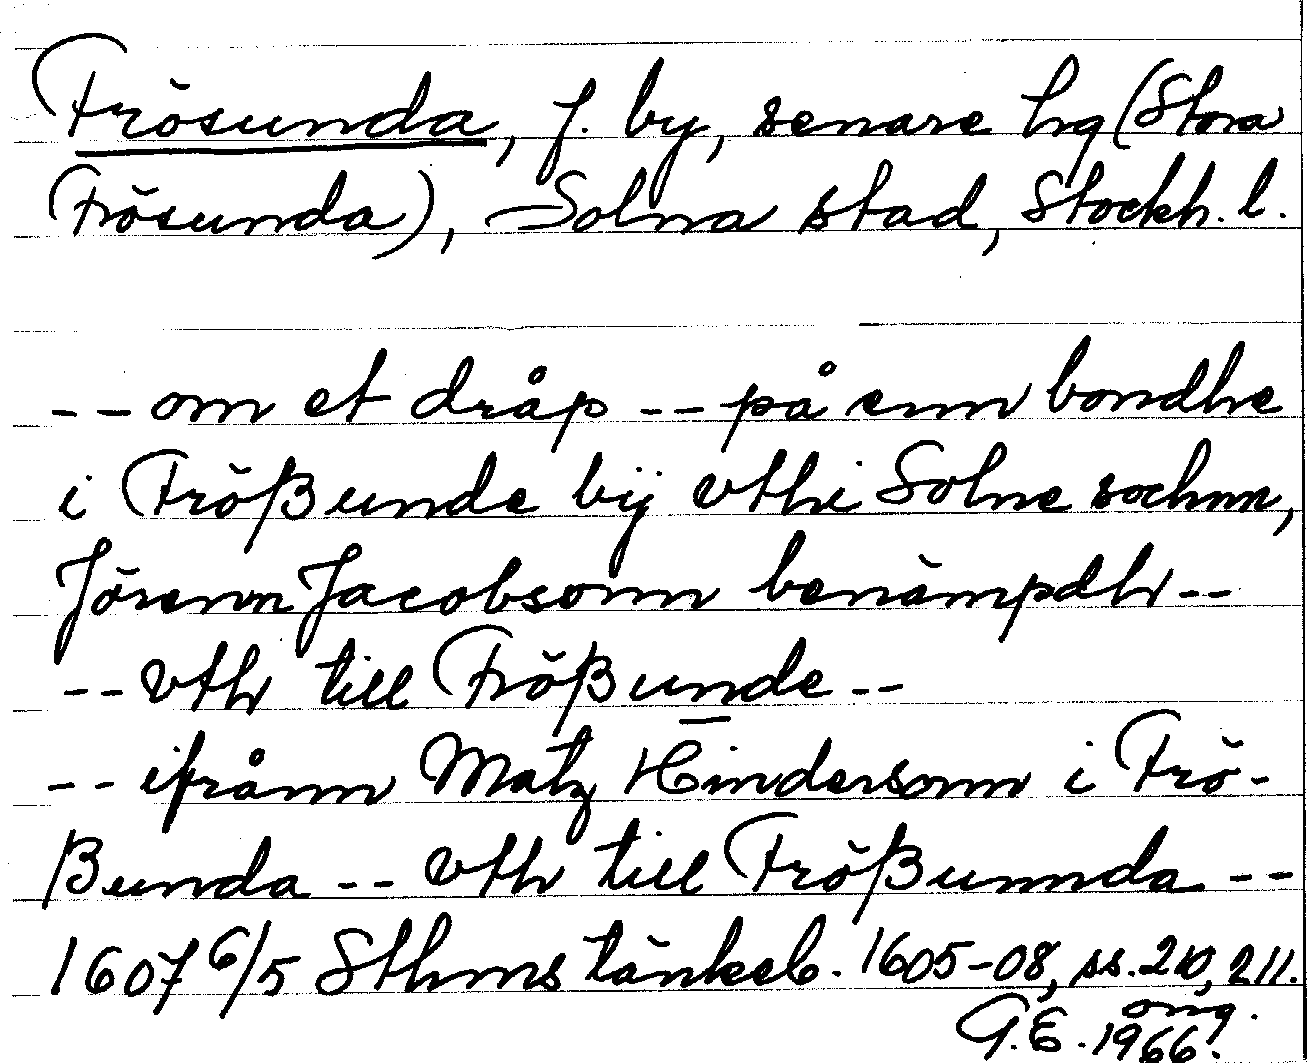 Frösunda, f. by, senare hg (Stora
Frösunda), Solna stad, Stockh. l.
-- om et dråp -- på enn bondhe
i Frößunde bÿ vthi Solne sochnn,
Jörenn Jacobsonn benämpdh --
-- vth till Frößunde --
-- ifrånn Matz Hindersonn i Frö-
ßunda -- vth till Frößunnda --
1607 6/5 Sthms tänkeb. 1605-08, ss. 210, 211.
orig.
G.E. 1966.